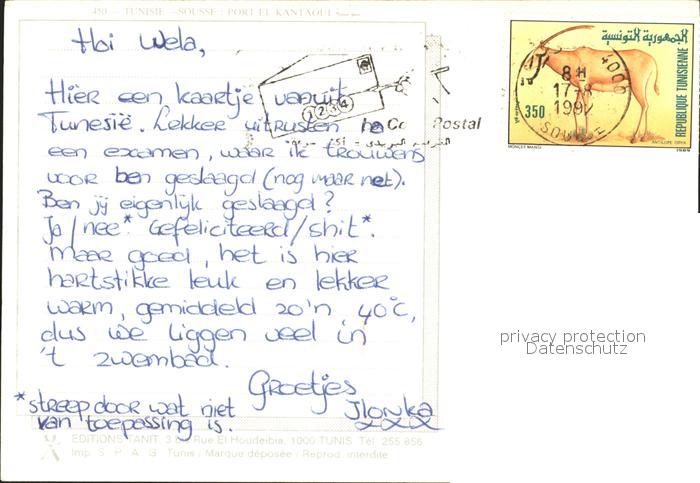 450 - TUNISIE - SOUSSE : PORT EL KANTAOUI سوسة
Hoi Wela,
Hier een kaartje vanuit
Tunesië. Lekker uitrusten na
een examen, waar ik trouwens
voor ben geslaagd (nog maar net).
Ben jij eigenlijk geslaagd?
Ja/nee* Gefeliciteerd/shit*.
Maar goed, het is hier
hartstikke leuk en lekker
warm, gemiddeld zo'n 40°C,
dus we liggen veel in
't zwembad.
Groetjes
Jlonka
xxx
*streep door wat niet
van toepassing is.
1 2 3 4
Postal
الجمهورية التونسية
REPUBLIQUE TUNISIENNE
350
8H
17-8
1992
4000
SOUSSE
ANTILOPE ORYX
1989
privacy protection
Datenschutz
EDITIONS TANIT, 3 Rue El Houdeibia, 1000 TUNIS Tél. 255 856
Imp. S. P. A. G. Tunis / Marque déposée / Reprod. interdite